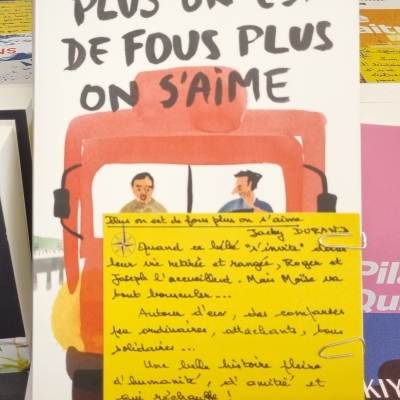 PLUS ON EST
DE FOUS PLUS
ON S'AIME
Plus on est de fous plus on s'aime
Jacky DURAND
Quand ce bébé "s'invite" dans
leur vie retirée et rangée, Roger et
Joseph l'accueillent. Mais Moïse va
tout bousculer...
Autour d'eux, des comparses
peu ordinaires, attachants, tous
solidaires...
Une belle histoire pleine
d'humanité, d'amitié et
qui réchauffe !
Pila
Qu
KIY